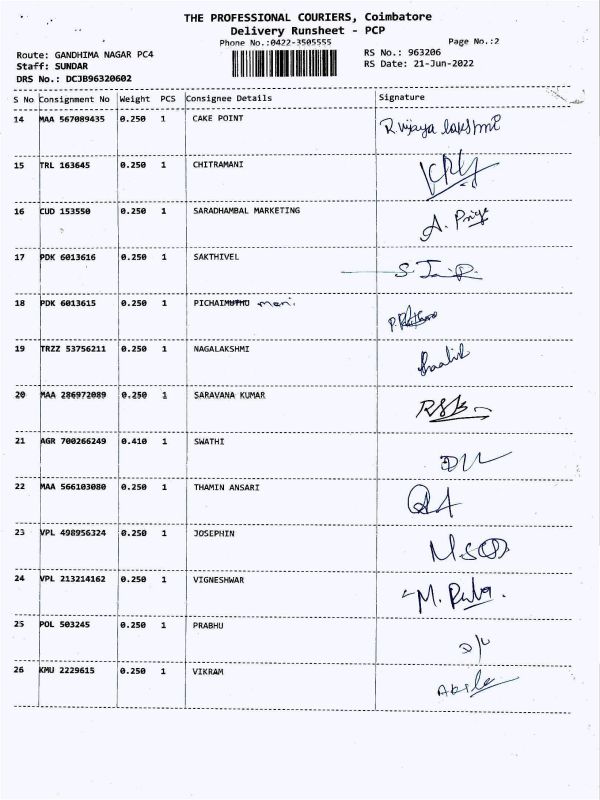 THE PROFESSIONAL COURIERS, Coimbatore
Delivery Runsheet - PCP
Phone No.:0422-3505555 Page No.:2
Route: GANDHIMA NAGAR PC4 RS No.: 963206
Staff: SUNDAR RS Date: 21-Jun-2022
DRS No.: DCJB96320602
S No Consignment No Weight PCS Consignee Details Signature
14 MAA 567089435 0.250 1 CAKE POINT R. Vijaya lakshmi
15 TRL 163645 0.250 1 CHITRAMANI
16 CUD 153550 0.250 1 SARADHAMBAL MARKETING A. Priya
17 PDK 6013616 0.250 1 SAKTHIVEL
18 PDK 6013615 0.250 1 PICHAIMUTHU mani.
19 TRZZ 53756211 0.250 1 NAGALAKSHMI
20 MAA 286972089 0.250 1 SARAVANA KUMAR
21 AGR 700266249 0.410 1 SWATHI
22 MAA 566103080 0.250 1 THAMIN ANSARI
23 VPL 498956324 0.250 1 JOSEPHIN
24 VPL 213214162 0.250 1 VIGNESHWAR
25 POL 503245 0.250 1 PRABHU
26 KMU 2229615 0.250 1 VIKRAM